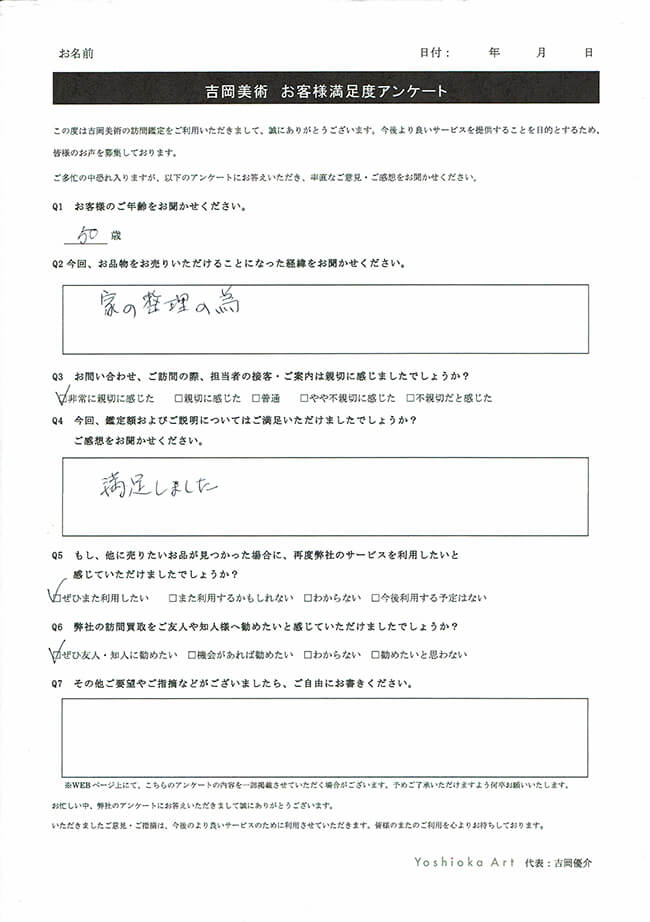 お名前 日付： 年 月 日
吉岡美術 お客様満足度アンケート
この度は吉岡美術の訪問鑑定をご利用いただきまして、誠にありがとうございます。今後より良いサービスを提供することを目的とするため、
皆様のお声を募集しております。
ご多忙の中恐れ入りますが、以下のアンケートにお答えいただき、率直なご意見・ご感想をお聞かせください。
Q1 お客様のご年齢をお聞かせください。
50 歳
Q2 今回、お品物をお売りいただけることになった経緯をお聞かせください。
家の整理の為
Q3 お問い合わせ、ご訪問の際、担当者の接客・ご案内は親切に感じましたでしょうか？
☑非常に親切に感じた □親切に感じた □普通 □やや不親切に感じた □不親切だと感じた
Q4 今回、鑑定額およびご説明についてはご満足いただけましたでしょうか？
ご感想をお聞かせください。
満足しました
Q5 もし、他に売りたいお品が見つかった場合に、再度弊社のサービスを利用したいと
感じていただけましたでしょうか？
☑ぜひまた利用したい □また利用するかもしれない □わからない □今後利用する予定はない
Q6 弊社の訪問買取をご友人や知人様へ勧めたいと感じていただけましたでしょうか？
☑ぜひ友人・知人に勧めたい □機会があれば勧めたい □わからない □勧めたいと思わない
Q7 その他ご要望やご指摘などがございましたら、ご自由にお書きください。
※WEBページ上にて、こちらのアンケートの内容を一部掲載させていただく場合がございます。予めご了承いただけますよう何卒お願いいたします。
お忙しい中、弊社のアンケートにお答えいただきまして誠にありがとうございます。
いただきましたご意見・ご指摘は、今後のより良いサービスのために利用させていただきます。皆様のまたのご利用を心よりお待ちしております。
Yoshioka Art 代表：吉岡優介